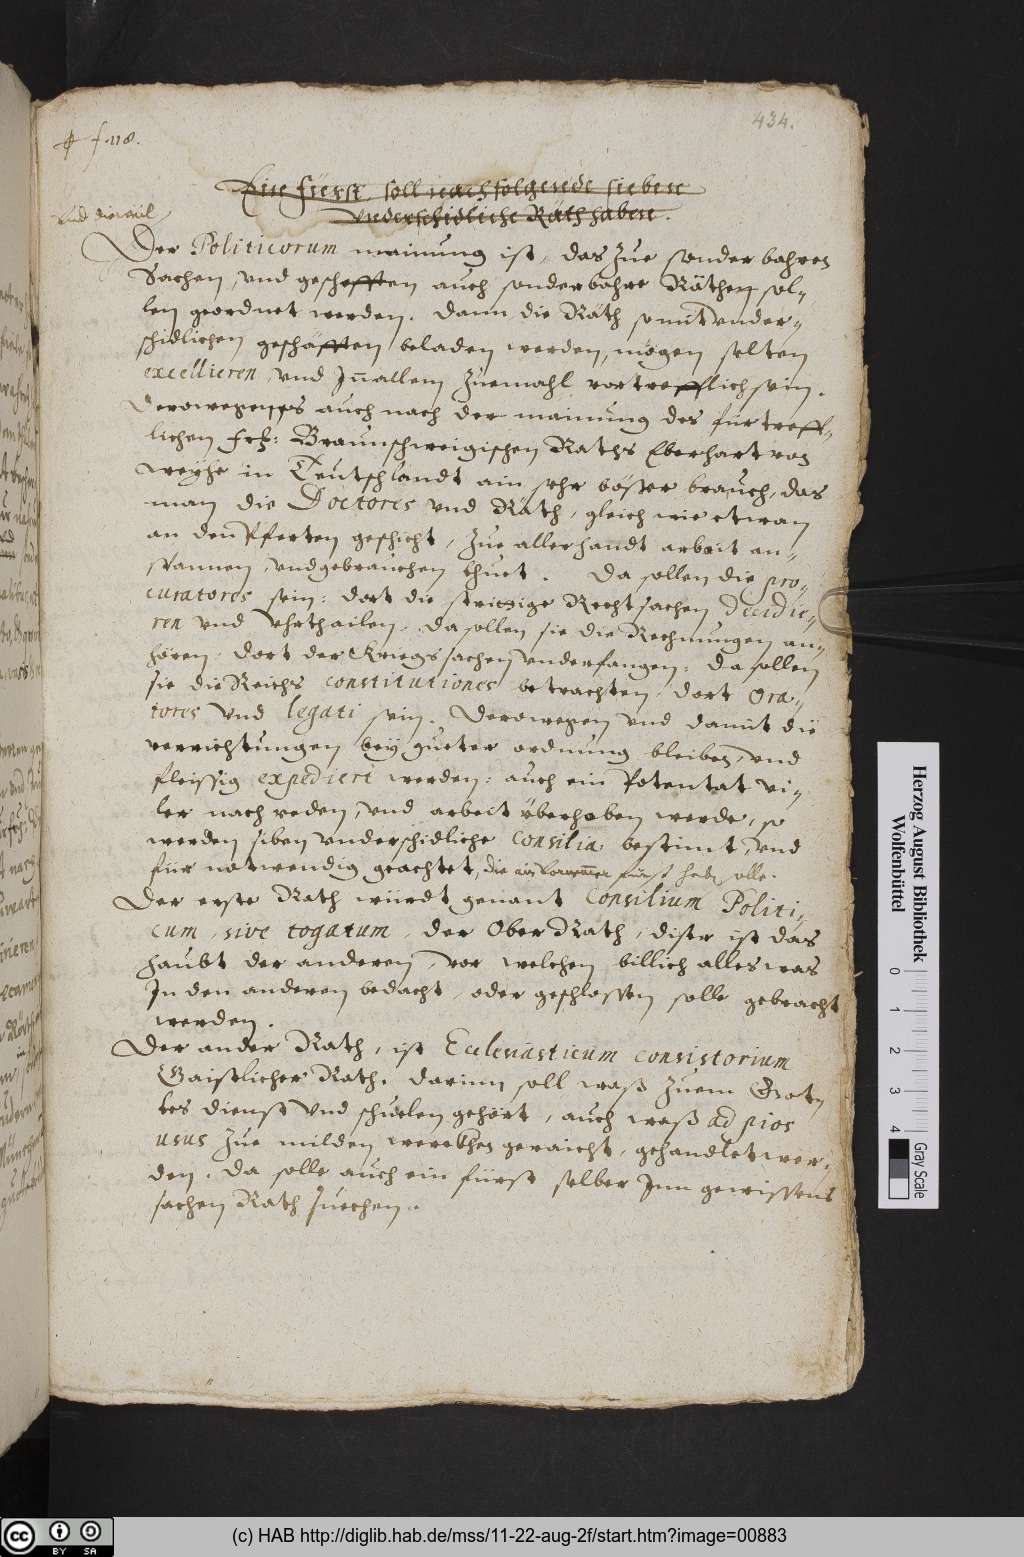 434.
f. 118.
Ein fürst soll nachfolgende sieben
vnderschidliche Räth haben.
vnd dieweil
Der Politicorum mainung ist, das zue sonderbahren
Sachen, vnd geschefften auch sonderbahre Räthen sol-
len geordnet werden. Dann die Räth so mit vnder-
schidlichen geschäfften beladen werden, mögen selten
excellieren, vnd Jnn allem zuemahl vortrefflich sein.
Derowegen auch nach der mainung des fürtreff-
lichen Braunschweigischen Raths Eberhart von
Weyhe in Teutschlandt ain sehr böser brauch, das
man die Doctores vnd Räth, gleich wie etwan
an den Pferten geschicht, zue allerhandt arbeit an-
spannen, vnd gebrauchen thuet. Da sollen die pro-
curatores sein: dort die strittige Rechtsachen decidie-
ren vnd vhrthailen. Da sollen sie die Rechnungen an-
hören. dort der Kriegssachen vnderfangen: da sollen
sie die Reichs constitutiones betrachten. dort ora-
tores vnd legati sein. Derowegen vnd damit die
verrichtungen bey gueter ordnung bleiben, vnd
fleissig expediert werden: auch ein Potentat vi-
ler nach reden, vnd arbeit überhoben werde, so
werden siben vnderschidliche Consilia bestimt, vnd
für notwendig geachtet, die ein fürst haben solle.
Der erste Rath würdt genant Consilium Politi-
cum, sive togatum, der Ober Rath, diser ist das
haubt der anderen, vor welchen billich alles was
Jn den anderen bedacht, oder geschlossen solle gebracht
werden.
Der ander Rath, ist Ecclesiasticum consistorium
Gaistlicher Rath. darinn soll waß zuem Got-
tes dienst vnd schuelen gehört, auch waß ad pios
usus zue milden werckhen geraicht, gehandlet wer-
den. Da solle auch ein fürst selber Jnn gewissens
sachen Rath suechen.
Herzog August Bibliothek
Wolfenbüttel
0 1 2 3 4
Gray Scale
cc BY SA
(c) HAB http://diglib.hab.de/mss/11-22-aug-2f/start.htm?image=00883